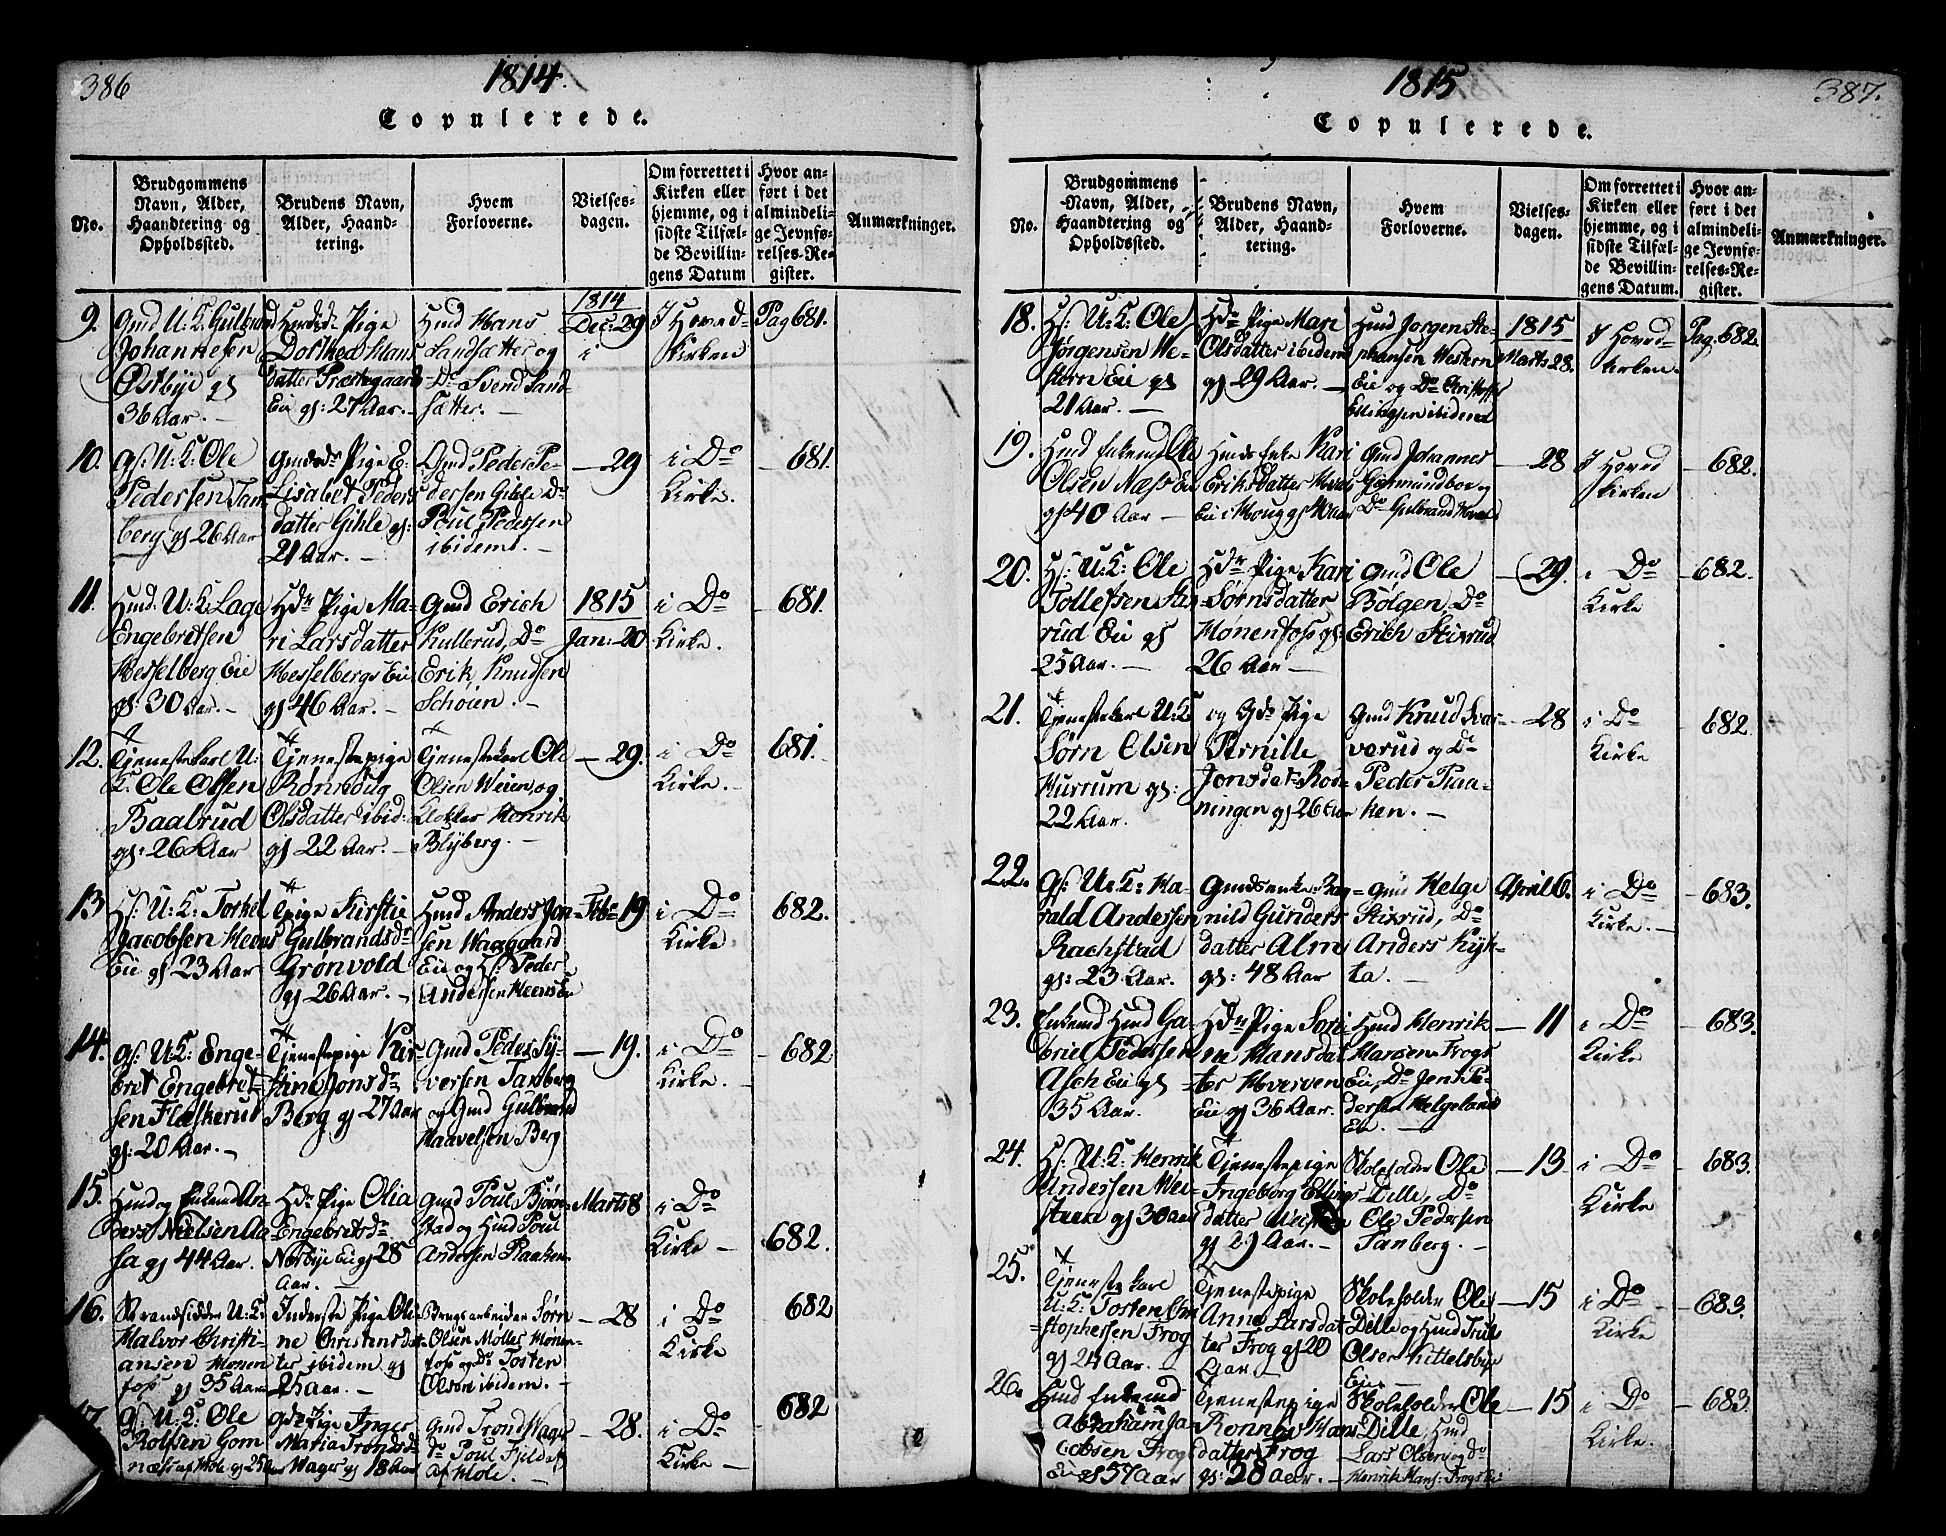 386
1814.
Copulerede.
No.
Brudgommens
Navn, Alder,
Haandtering og
Opholdssted.
Brudens Navn,
Alder, Haand-
tering.
Hvem
Forloverne.
Vielses-
dagen.
Om forrettet i
Kirken eller
hjemme, og i
sidste Tilfæl-
de Bevillin-
gens Datum
Hvor an-
ført i det
almindeli-
ge Jevnfø-
relses-Re-
gister.
Anmærkninger.
9.
Gmd U: K. Gulbrand
Johannesen
Østbye gl
36 Aar.
Pige
Dorthea Hans
datter Præstegaards
Eie gl: 27 Aar.
Hmd Hans
Landsætter og
Do Svend Land-
sætter.
1814
Dec: 29
I Hoved-
kirken
Pag 681.
10.
Gs: U: K: Ole
Pedersen Tan-
berg gl 26 Aar
Pige E-
Lisabet Peders
datter Gihle gl:
21 Aar.
Gmd Peder Pe-
dersen Gihle Do
Poul Pedersen
ibidem.
29
i Do
Kirke.
681.
11.
Hmd. U: K: Lage
Engebretsen
Hesselberg Eie
gl: 30 Aar.
Hdr Pige Ma-
ri Larsdatter
Hesselbergs Eie
gl 46 Aar.
Gmd Erich
Kullerud, Do
Erik Knudsen
Schöien.
1815
Jan: 20
i Do
Kirke.
681.
12.
Tjenestekarl U:
K. Ole Olsen
Baalrud
gl: 26 Aar
Tjenestepige
Olsdatter ibid:
gl 22 Aar.
Tjenestekarl Ole
Olsen Weien, og
Henrik
Blyberg.
29.
i Do
Kirke.
681.
13
Hs: U: K: Torkel
Jacobsen
Eie gl 23 Aar
Tpige Kirstie
Gulbrandsdr
Grønvold
gl 26 Aar.
Hmd Anders Jon-
sen Waagaard
Eie og Hs: Peder
Andersen Heens Eie
Febr 19
i Do
Kirke
682.
14.
Gs: U: K: Enge-
bret Engebret-
sen Flæskerud
gl: 20 Aar.
Tjenestepige Kir-
stine Jonsdr
Berg gl 27 Aar
Gmd Peder Sy-
versen Tanberg
og Gmd Gulbrand
Haavelsen Berg
19.
i Do
Kirke.
682
15.
Hmd og Enkemd An-
ders Nielsen Aa-
sa gl 44 Aar.
Hdr Pige Olia
Engebretsdr
Norbye Eie gl 28
Aar.
Gmd Poul Bjøre-
stad og Hmd Poul
Andersen Raaken
Marts 8
i Do
Kirke
682.
16.
Strandsidder U: K:
Halvor Christi-
ansen Hønen
fos gl 35 Aar
Inderste Pige Oli-
ne Christensdat-
ter ibidem gl
25 Aar.
Brugsarbeider Sørn
Olsen Möller Hönen-
fos og Do Tosten
Olsen ibidem.
28
i Do
Kirke
682
17.
Gs: U: K: Ole
Rolfsen Gom
næs af Hole gl 25 Aar
Gdr Pige Inger
Maria Tronsdr
Wager gl 18 Aar
Gmd Trond Wager
Do Poul
af Hole.
28.
i Do
Kirke.
682
1815
387.
Copulerede.
No.
Brudgommens
Navn, Alder,
Haandtering og
Opholdssted.
Brudens Navn,
Alder, Haand-
tering.
Hvem
Forloverne.
Vielses-
dagen.
Om forrettet i
Kirken eller
hjemme, og i
sidste Tilfæl-
de Bevillin-
gens Datum.
Hvor an-
ført i det
almindeli-
ge Jevnfø-
relses-Re-
gister.
Anmærkninger.
18.
Hs: U: K: Ole
Jørgensen We-
stern Eie gl
21 Aar.
Hdr Pige Mari
Olsdatter ibidem
gl 29 Aar.
Hmd Jørgen Ste-
phansen Western
Eie og Do Christoffer
Ellingsen ibidem
1815
Marts 28.
I Hoved-
kirken.
Pag. 682.
19.
Hmd Enkemd Ole
Olsen Næss Eie
gl 40 Aar
Hmds Enke Kari
Eriksdatter
Eie i Houg gl 40 Aar
Gmd Johannes
Do Gulbrand
28
I Hoved
kirken
682.
20.
Hs: U: K: Ole
Tollefsen
rud Eie gl
25 Aar.
Hdr Pige Kari
Sørnsdatter
Hønenfos gl:
26 Aar
Gmd Ole
Bölgen, Do
Erich Stixrud
29.
i Do
Kirke
682.
21.
Tjenestekarl U: K
Sørn Olsen
Hurrum gl:
22 Aar.
og Gdr Pige
Pernille
Jonsdatr Rod-
ningen gl 26 Aar
Gmd Knud Svar-
verud og Do
Peder Raa-
ken.
28
i Do
Kirke
682.
22.
Gs: U: K: Ha-
rald Andersen
Rachstad
gl: 23 Aar.
Gmdsenke Rag-
nild Gunders
datter Alm
gl: 48 Aar
Gmd Helge
Stixrud, Do
Anders Kyk-
ta.
April 6.
i Do
Kirke.
683.
23.
Enkemd Hmd Ga-
briel Pedersen
Asch Eie gl
35 Aar.
Hdr Pige Sori-
ne Hansdat-
ter Hverven
Eie gl 36 Aar.
Hmd Henrik
Hansen Frogs
Eie, Do Jens Pe-
dersen Helgelands
Eie.
11
i Do
Kirke
683.
24.
Hs: U: K: Henrik
Andersen Wei-
staen gl 30 Aar
Tjenestepige
Ingeborg Ellings
datter
gl 29 Aar.
Skoleholder Ole
Dille, Do
Ole Pedersen
Tanberg.
13
i Do
Kirke
683.
25.
Tjenestekarl
U: K: Tosten Chri-
stophersen Frog
gl 24 Aar.
Tjenestepige
Anne Larsdat-
ter Frog gl 20
Aar
Skoleholder Ole
Dille og Hmd Truls
Olsen Kittelsbye
Eie.
15
i Do
Kirke
683.
26.
Hmd Enkemd
Abraham Ja-
cobsen Frog
Eie gl 57 Aar
Tjenestepige
Ronnov Hans
datter Frog
gl: 28 Aar.
Skoleholder Ole
Dille, Hmd
Lars Olsen og Do
Henrik Hans: Frogs Eie
15
i Do
Kirke.
683.